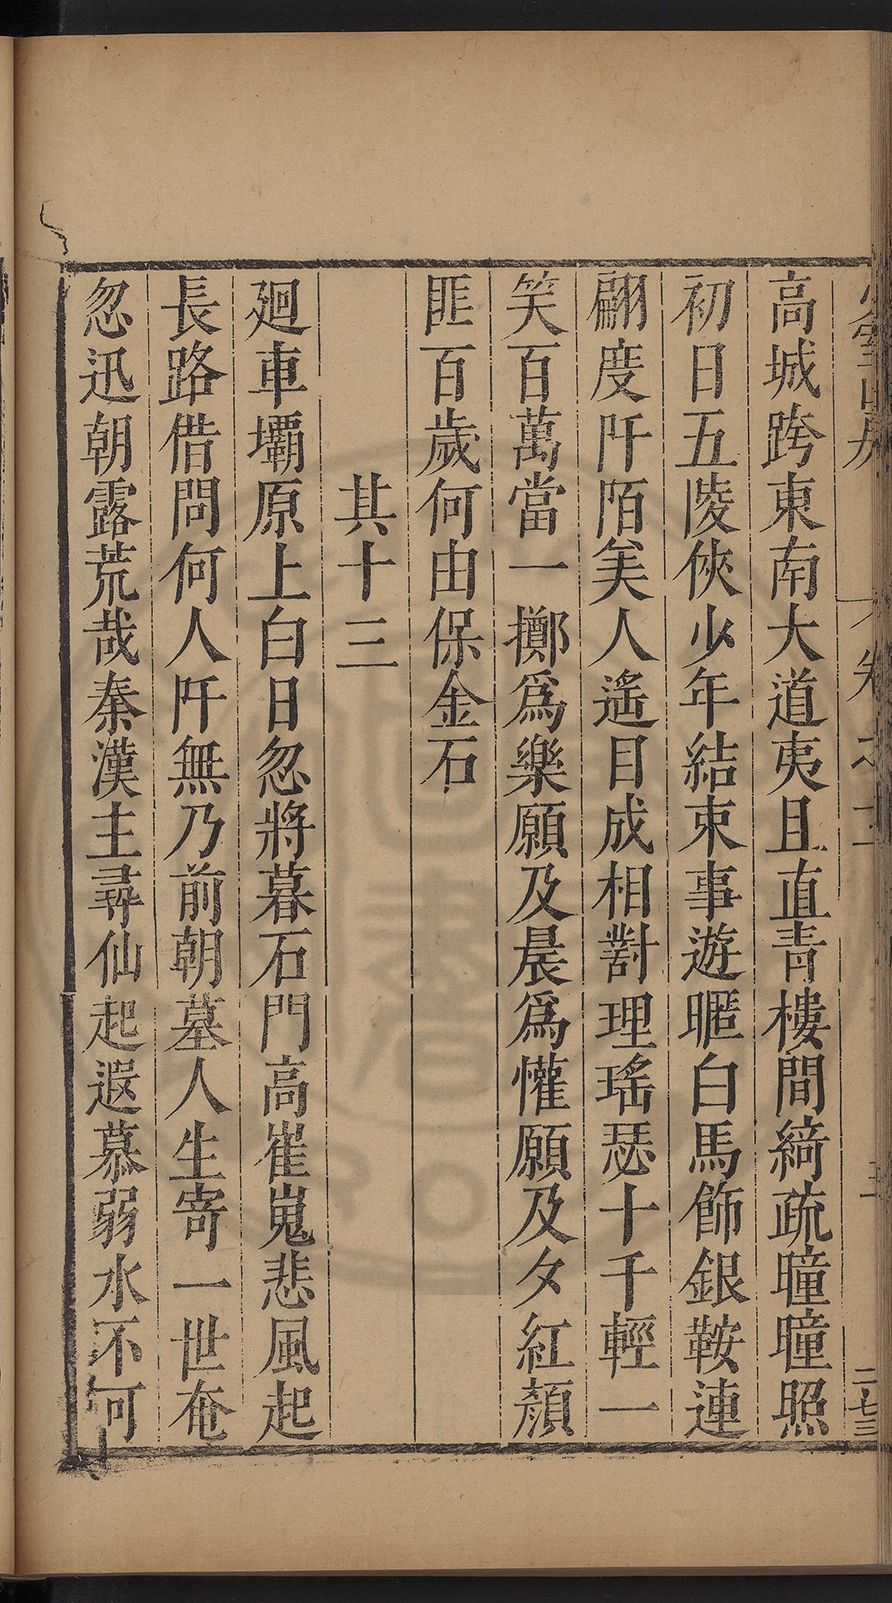 高城跨東南大道夷且直青樓間綺疏曈曈照
初日五陵俠少年結束事遊暱白馬飾銀鞍連
翩度阡陌美人遙目成相對理瑤瑟十千輕一
笑百萬當一擲爲樂願及晨爲懽願及夕紅顏
匪百歲何由保金石
其十三
廻車壩原上白日忽將暮石門高崔嵬悲風起
長路借問何人阡無乃前朝墓人生寄一世奄
忽迅朝露荒哉秦漢主尋仙起遐慕弱水不可
二七三